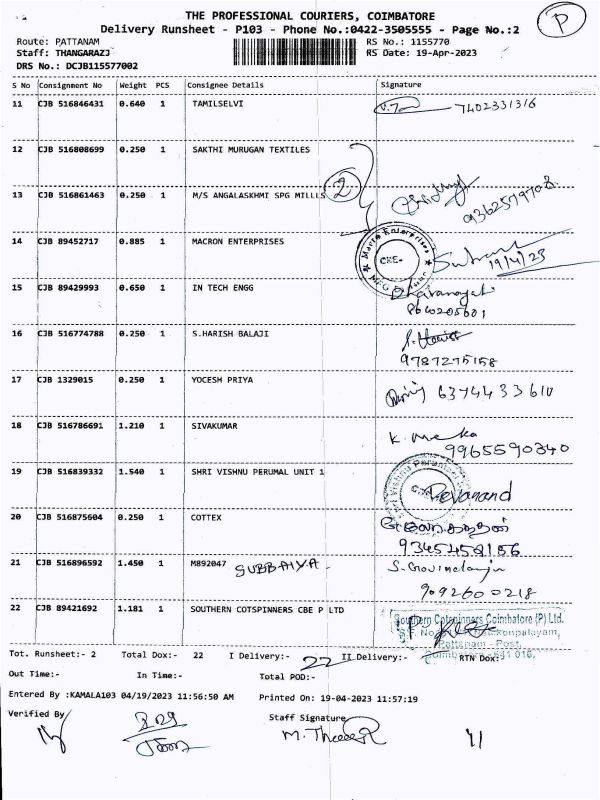 THE PROFESSIONAL COURIERS, COIMBATORE
Delivery Runsheet - P103 - Phone No.:0422-3505555 - Page No.:2
P
Route: PATTANAM RS No.: 1155770
Staff: THANGARAZJ RS Date: 19-Apr-2023
DRS No.: DCJB115577002
S No Consignment No Weight PCS Consignee Details Signature
11 CJB 516846431 0.640 1 TAMILSELVI 7402331316
12 CJB 516808699 0.250 1 SAKTHI MURUGAN TEXTILES
13 CJB 516861463 0.250 1 M/S ANGALASKHMI SPG MILLLS 2 9362579708
14 CJB 89452717 0.885 1 MACRON ENTERPRISES 19/4/23
15 CJB 89429993 0.650 1 IN TECH ENGG
16 CJB 516774788 0.250 1 S.HARISH BALAJI
9787275158
17 CJB 1329015 0.250 1 YOCESH PRIYA
18 CJB 516786691 1.210 1 SIVAKUMAR
9965590340
19 CJB 516839332 1.540 1 SHRI VISHNU PERUMAL UNIT 1 Devanand
20 CJB 516875604 0.250 1 COTTEX
21 CJB 516896592 1.450 1 M892047 SUBBAIYA -
9092600218
22 CJB 89421692 1.181 1 SOUTHERN COTSPINNERS CBE P LTD
Southern Cotspinners Coimbatore (P) Ltd.
Pattanam Post,
Tot. Runsheet:- 2 Total Dox:- 22 I Delivery:- 22 II Delivery:- RTN Dox:
Out Time:- In Time:- Total POD:-
Entered By :KAMALA103 04/19/2023 11:56:50 AM Printed On: 19-04-2023 11:57:19
Verified By Staff Signature